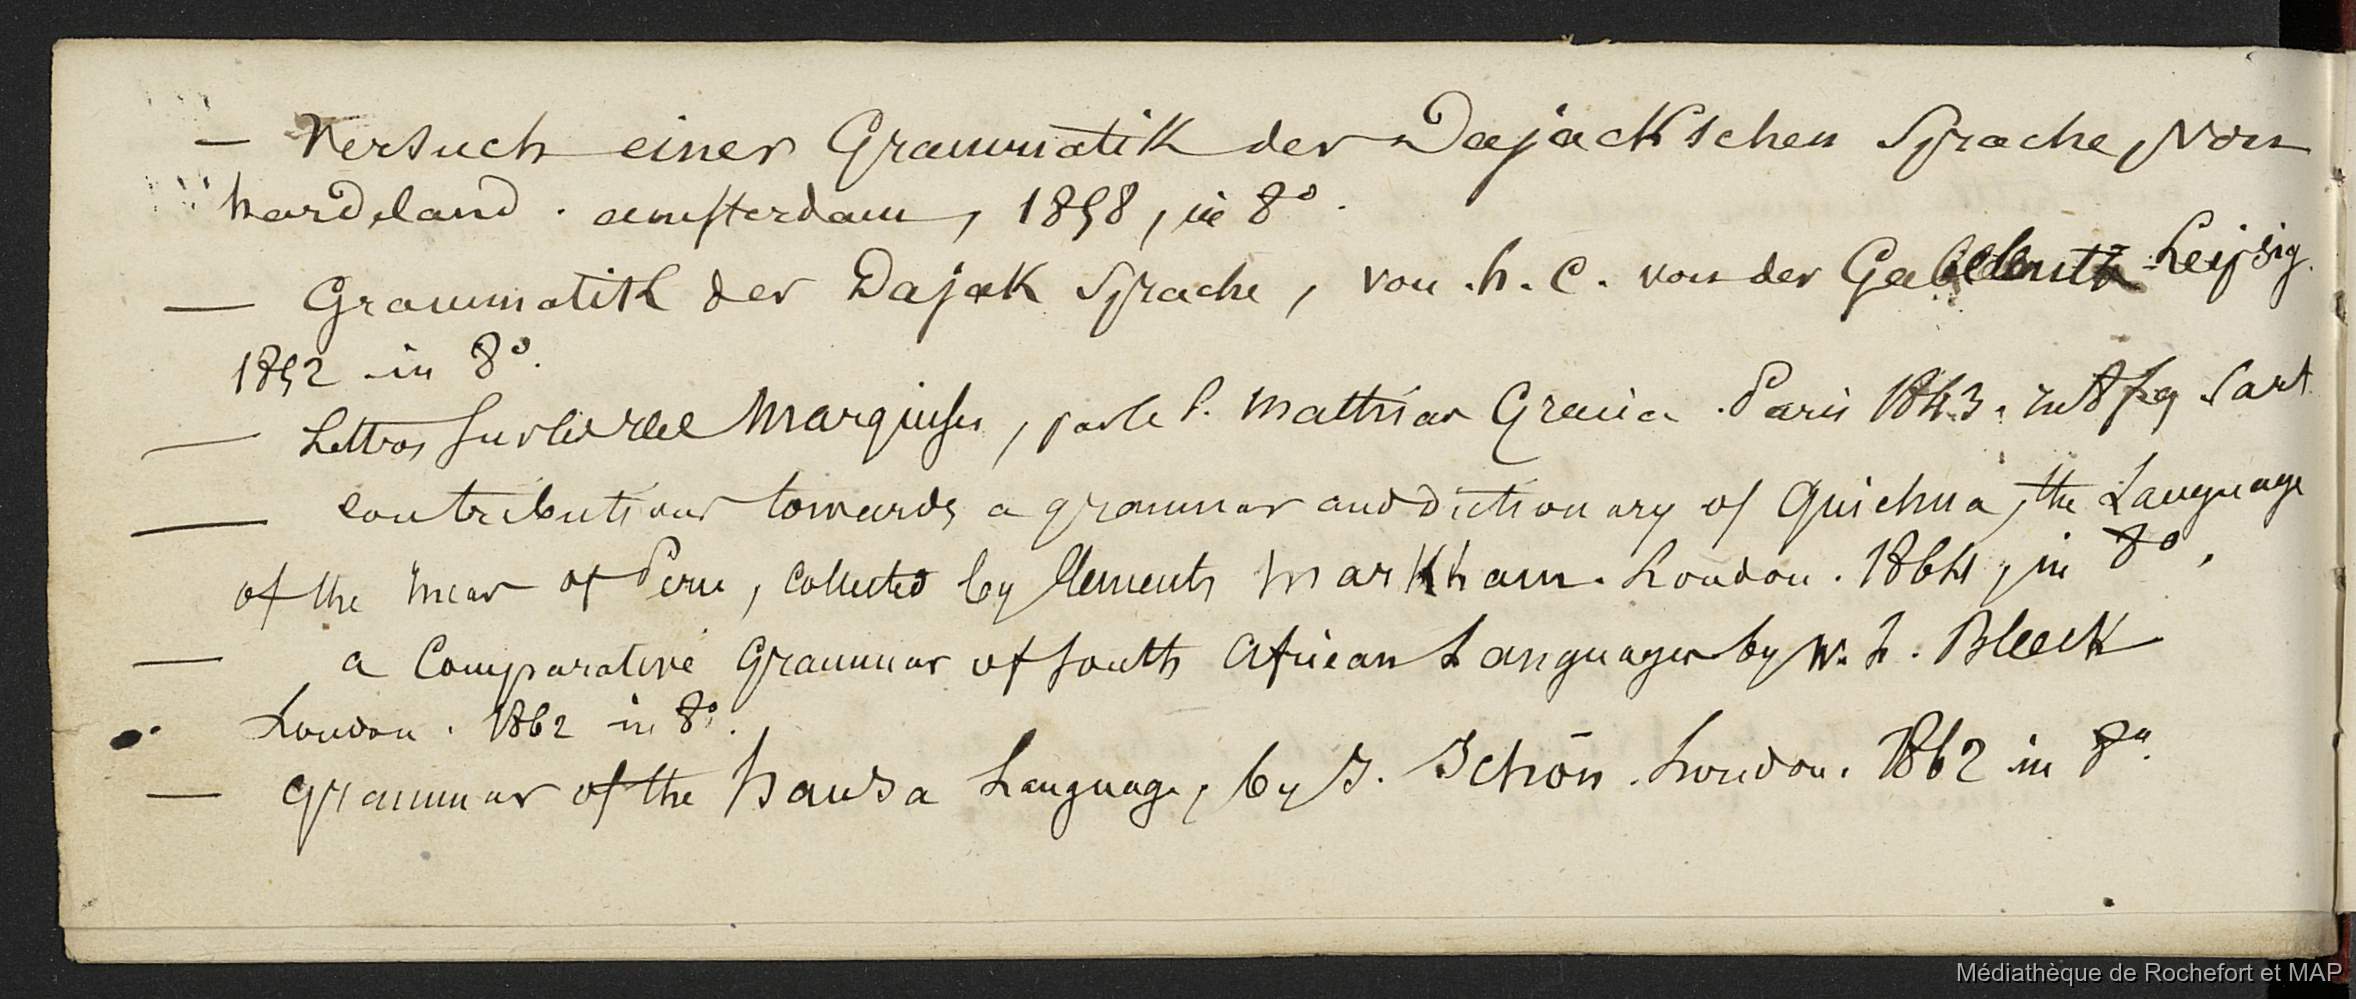 — Versuch einer Grammatik der Dajackschen Sprache, von
hardeland . amsterdam, 1858, in 8°.
— Grammatik der Dajak Sprache, von . h. C. von der Gabelentz Leipsig.
1852 in 8°.
— Lettres sur les iles Marquises, par le P. Mathias Gracia . Paris 1843. in 8 fig Cart
— contributions towards a grammar and dictionary of Quichua, the Language
of the incas of Peru, collected by Clements Markham. London. 1864, in 8°.
— a Comparative Grammar of South African Languages by W. h. Bleek
London. 1862 in 8°.
— grammar of the hausa Language, by J. Schön. London. 1862 in 8°.
Médiathèque de Rochefort et MAP